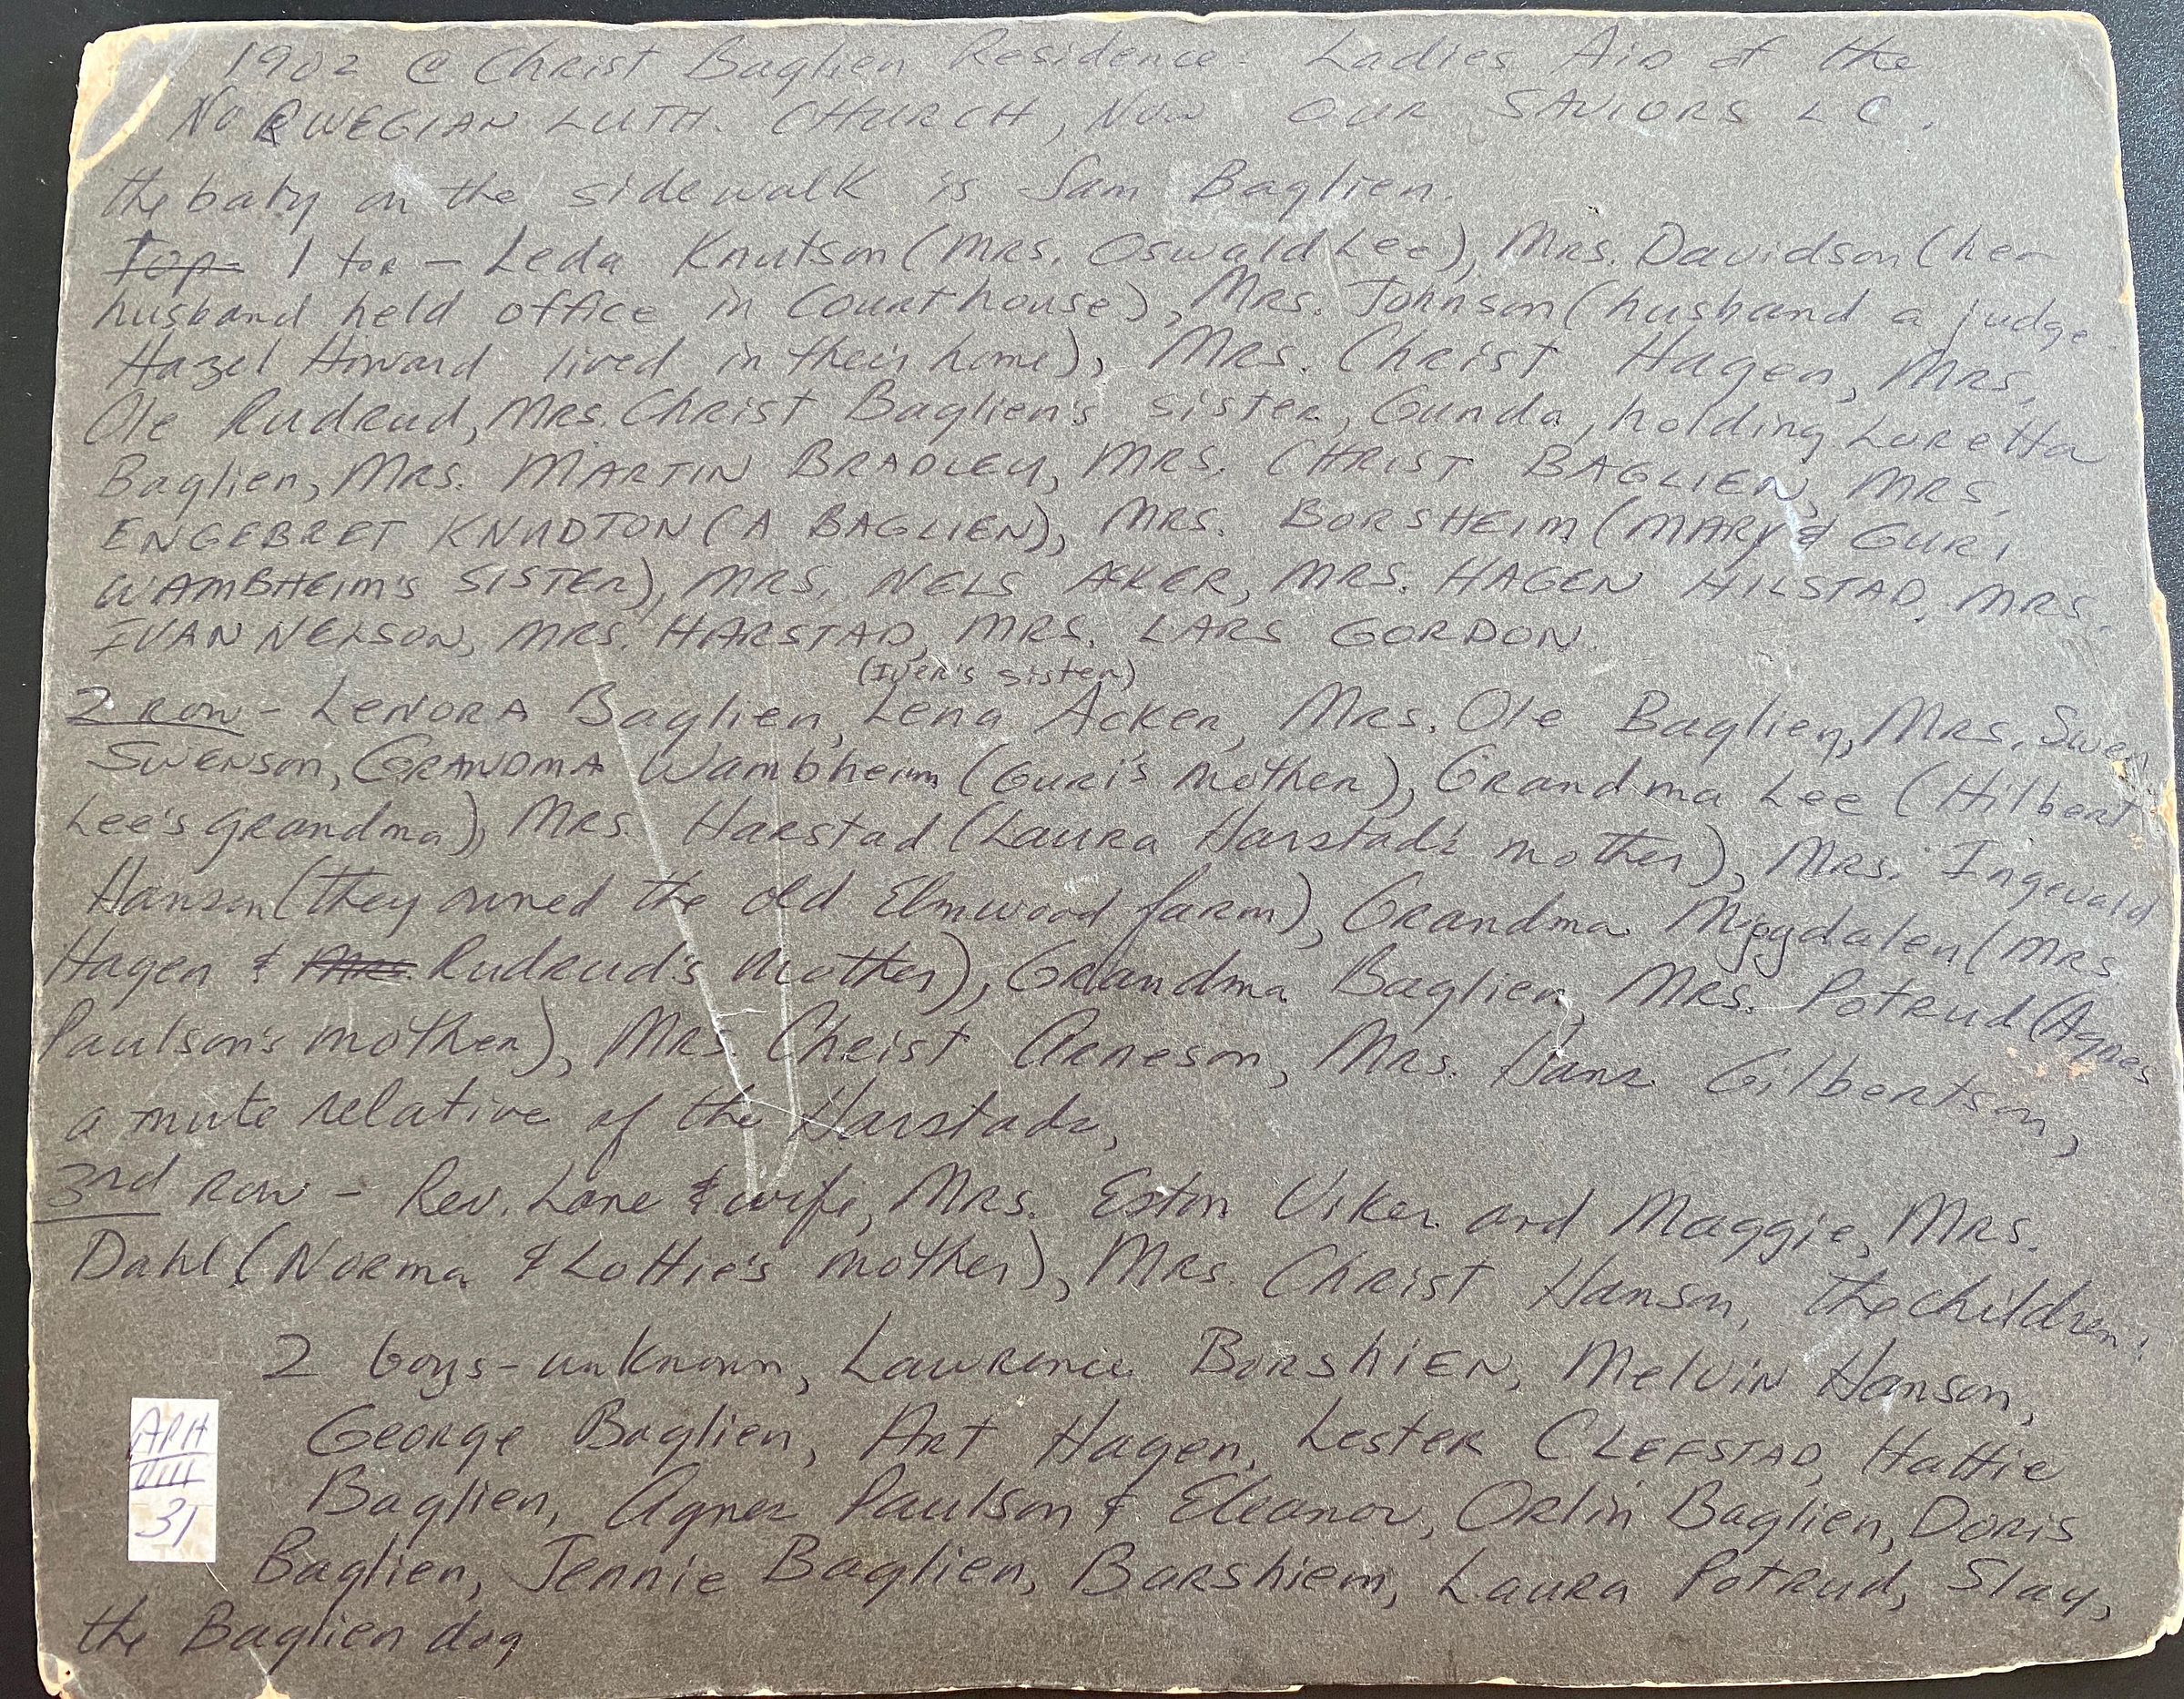 1902 @ Christ Baglien Residence: Ladies Aid of the
NORWEGIAN LUTH. CHURCH, NOW OUR SAVIORS L C.
the baby on the sidewalk is Sam Baglien.
Top- l to r - Leda Knutson (Mrs. Oswald Lee), Mrs. Davidson (her
husband held office in Courthouse), Mrs. Johnson (husband a judge.
Hazel Howard lived in their home), Mrs. Christ Hagen, Mrs.
Ole Rudrud, Mrs. Christ Baglien's sister, Gunda, holding Loretta
Baglien, Mrs. MARTIN BRADLEY, MRS. CHRIST BAGLIEN, MRS.
ENGEBRET KNUDTON (A BAGLIEN), MRS. BORSHEIM (MARY & GURI
WAMBHEIM'S SISTER), MRS. NELS ACKER, MRS. HAGEN HILSTAD, MRS.
IVAN NELSON, MRS. HARSTAD, MRS. LARS GORDON.
(Iver's sister)
2 row - LENORA Baglien, Lena Acker, Mrs. Ole Baglien, Mrs. Swen
Swenson, GRANDMA Wambheim (Guri's mother), Grandma Lee (Hilbert
Lee's grandma), Mrs. Harstad (Laura Harstad's mother), Mrs. Ingevald
Hanson (they owned the old Elmwood farm), Grandma (Mrs
Hagen & Mrs. Rudrud's mother), Grandma Baglien, Mrs. Potrud (Agnes
Paulson's mother), Mrs. Christ Arneson, Mrs. Hans Gilbertson,
a mute relative of the Harstads,
3rd row - Rev. Lane & wife, Mrs. Eston Viker and Maggie, Mrs.
Dahl (Norma & Lottie's mother), Mrs. Christ Hanson, the children:
2 boys - unknown, Lawrence BORSHIEN, Melvin Hanson,
George Baglien, Art Hagen, Lester CLEFSTAD, Hattie
Baglien, Agnes Paulson & Eleanor, Orlin Baglien, Doris
Baglien, Jennie Baglien, Barshiem, Laura Potrud, Slay,
the Baglien dog
APH
31